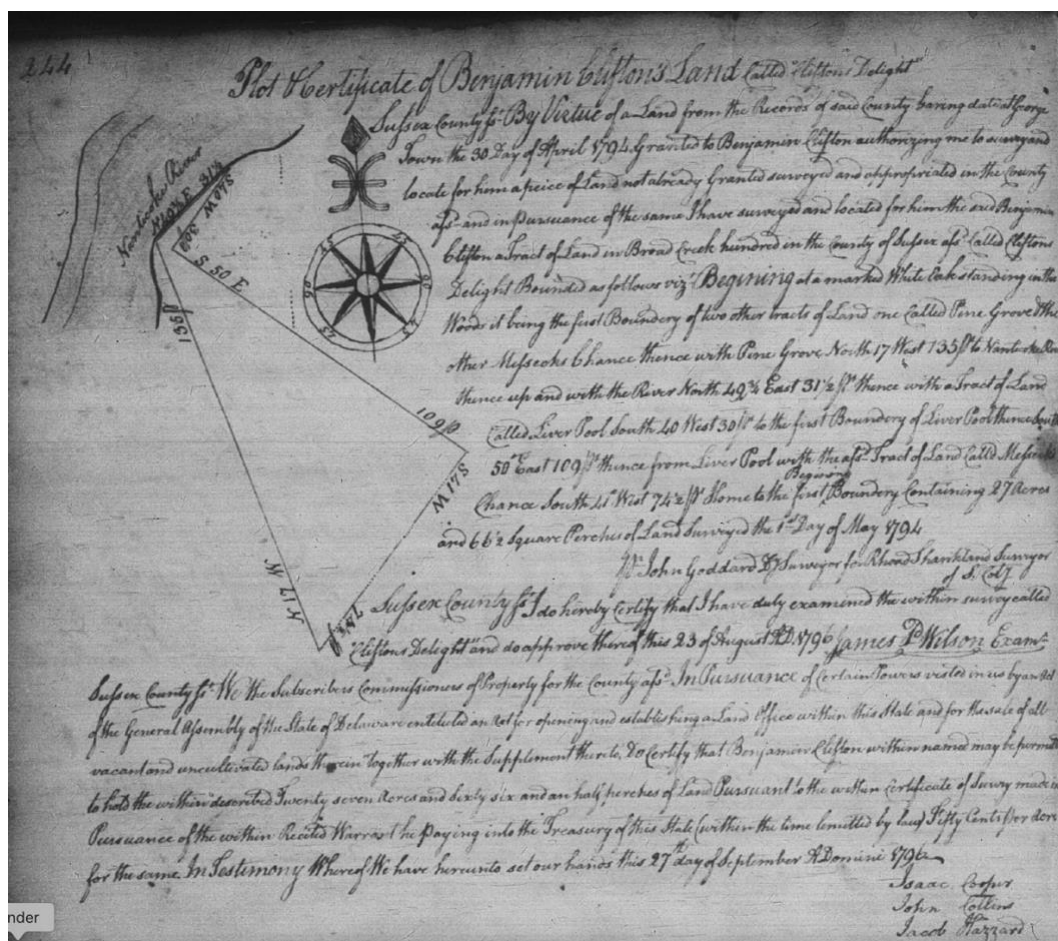 244
Plot & Certificate of Benjamin Clifton's Land Called "Clifton's Delight"
Sussex County ss. By Virtue of a Land from the Records of said County baring date at George
Town the 30 Day of April 1794 Granted to Benjamin Clifton authorizing me to survey and
locate for him a peice of Land not already Granted surveyed and appropriated in the County
afsd and in pursuance of the same I have surveyed and located for him the said Benjamin
Clifton a Tract of Land in Broad Creek hundred in the County of Sussex afsd Called Cliftons
Delight Bounded as follows vizt Begining at a marked White Oak standing in the
Woods it being the first Boundery of two other tracts of Land one Called Pine Grove & the
other Messeeks Chance thence with Pine Grove North 17 West 135 ps to Nanticoke River
thence up and with the River North 49¾ East 31½ ps thence with a Tract of Land
Called Liver Pool South 40 West 30 ps to the first Boundery of Liver Pool thence South
50 East 109 ps thence from Liver Pool with the afsd Tract of Land Called Messicks
Begining
Chance South 41 West 74½ ps Home to the first Boundery Containing 27 Acres
and 66½ Square Perches of Land Surveyed the 1st Day of May 1794
Pr John Goddard Dy Surveyor for Rhoad Shankland Surveyor
of S. Coty
Sussex County ss. I do hereby Certify that I have duly examined the within survey called
"Cliftons Delight" and do approve thereof this 23 of August AD. 1796 James P. Wilson Examr
Sussex County ss. We the Subscribers Commissioners of Property for the County afsd In Pursuance of Certain Powers vested in us by an Act
of the General Assembly of the State of Delaware entituled an Act for opening and establishing a Land Office within this State and for the sale of all
vacant and uncultivated lands therein Together with the Supplement thereto, Do Certify that Benjamin Clifton within named may be permitted
to hold the within described Twenty seven Acres and sixty six and an half perches of Land Pursuant to the within Certificate of Survey made in
Pursuance of the within Recited Warrant he paying into the Treasury of this State (within the time limited by law) Fifty Cents per Acre
for the same In Testimony Whereof We have hereunto set our hands this 27th day of September A Domini 1796
Isaac Cooper
John Collins
Jacob Hazzard
Nanticoke River
N 49¾ E 31½
S 40 W
30 ps
S 50 E
135 ps
109 ps
S 41 W
N 17 W
74½
45
45
90
90
45
45
nder